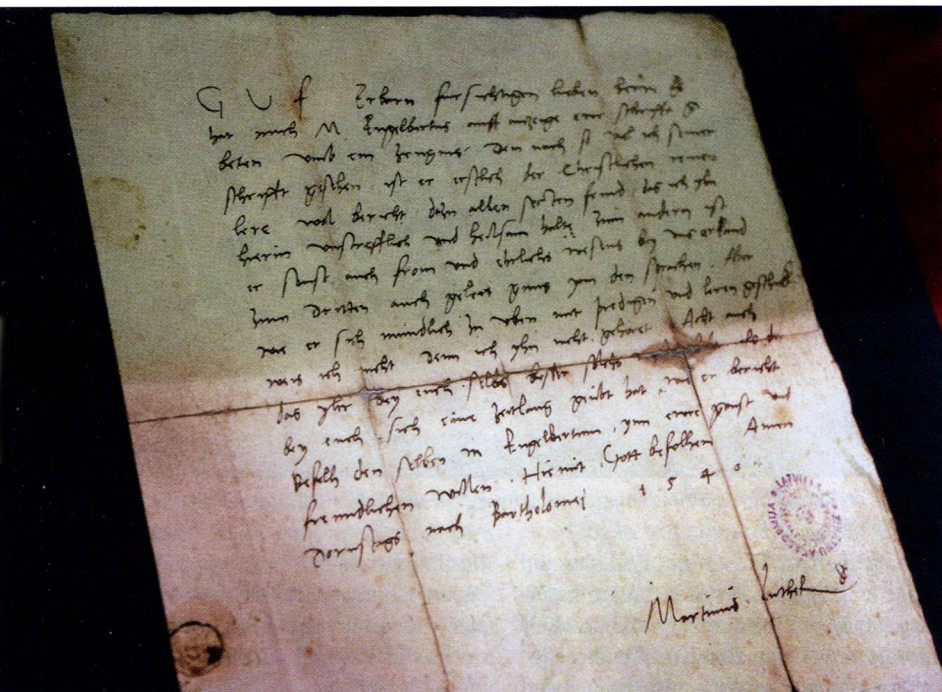 G U f Erbarn fursichtigen lieben herrn Es
hat mich M. Engelbertus auff anzeige ewr schrifft ge
beten umb ein zeugnis. Dem nach so viel ich seiner
schrifft gesehen, ist er erstlich der Christlichen reinen
lere wol bericht, dazu allen secten feind, das ich yhn
hierin unstrefflich und heilsam halte, Zum andern ist
er sunst auch from und ehrlichs wesens bey uns erkand
Zum dritten auch gelert gnug ynn den sprachen. Aber
wie er sich mundlich zu uben mit predigen und leren geschickt
weis ich nicht Denn ich yhn nicht gehoret Acht auch
das yhr bey euch selbs beste solchs als der
bey euch sich eine zeitlang geubt hat, wie er bericht
Befelh den selben M Engelbertum, ynn ewre gunst und
freundlichen willen. Hiemit Gott befolhen Amen
Dornstags nach Bartholomei 1540.
Martinus Luther